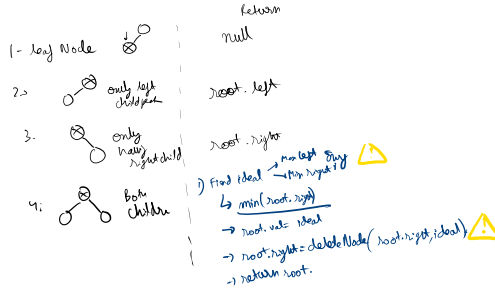 Return
1- leaf Node
null
2.
only left
child
root.left
3.
only
having
right child
root.right
4.
Both
children
1) Find ideal → Max left
→ Min right
↳ min(root.right)
→ root.val = ideal
→ root.right = deleteNode(root.right, ideal)
→ return root.